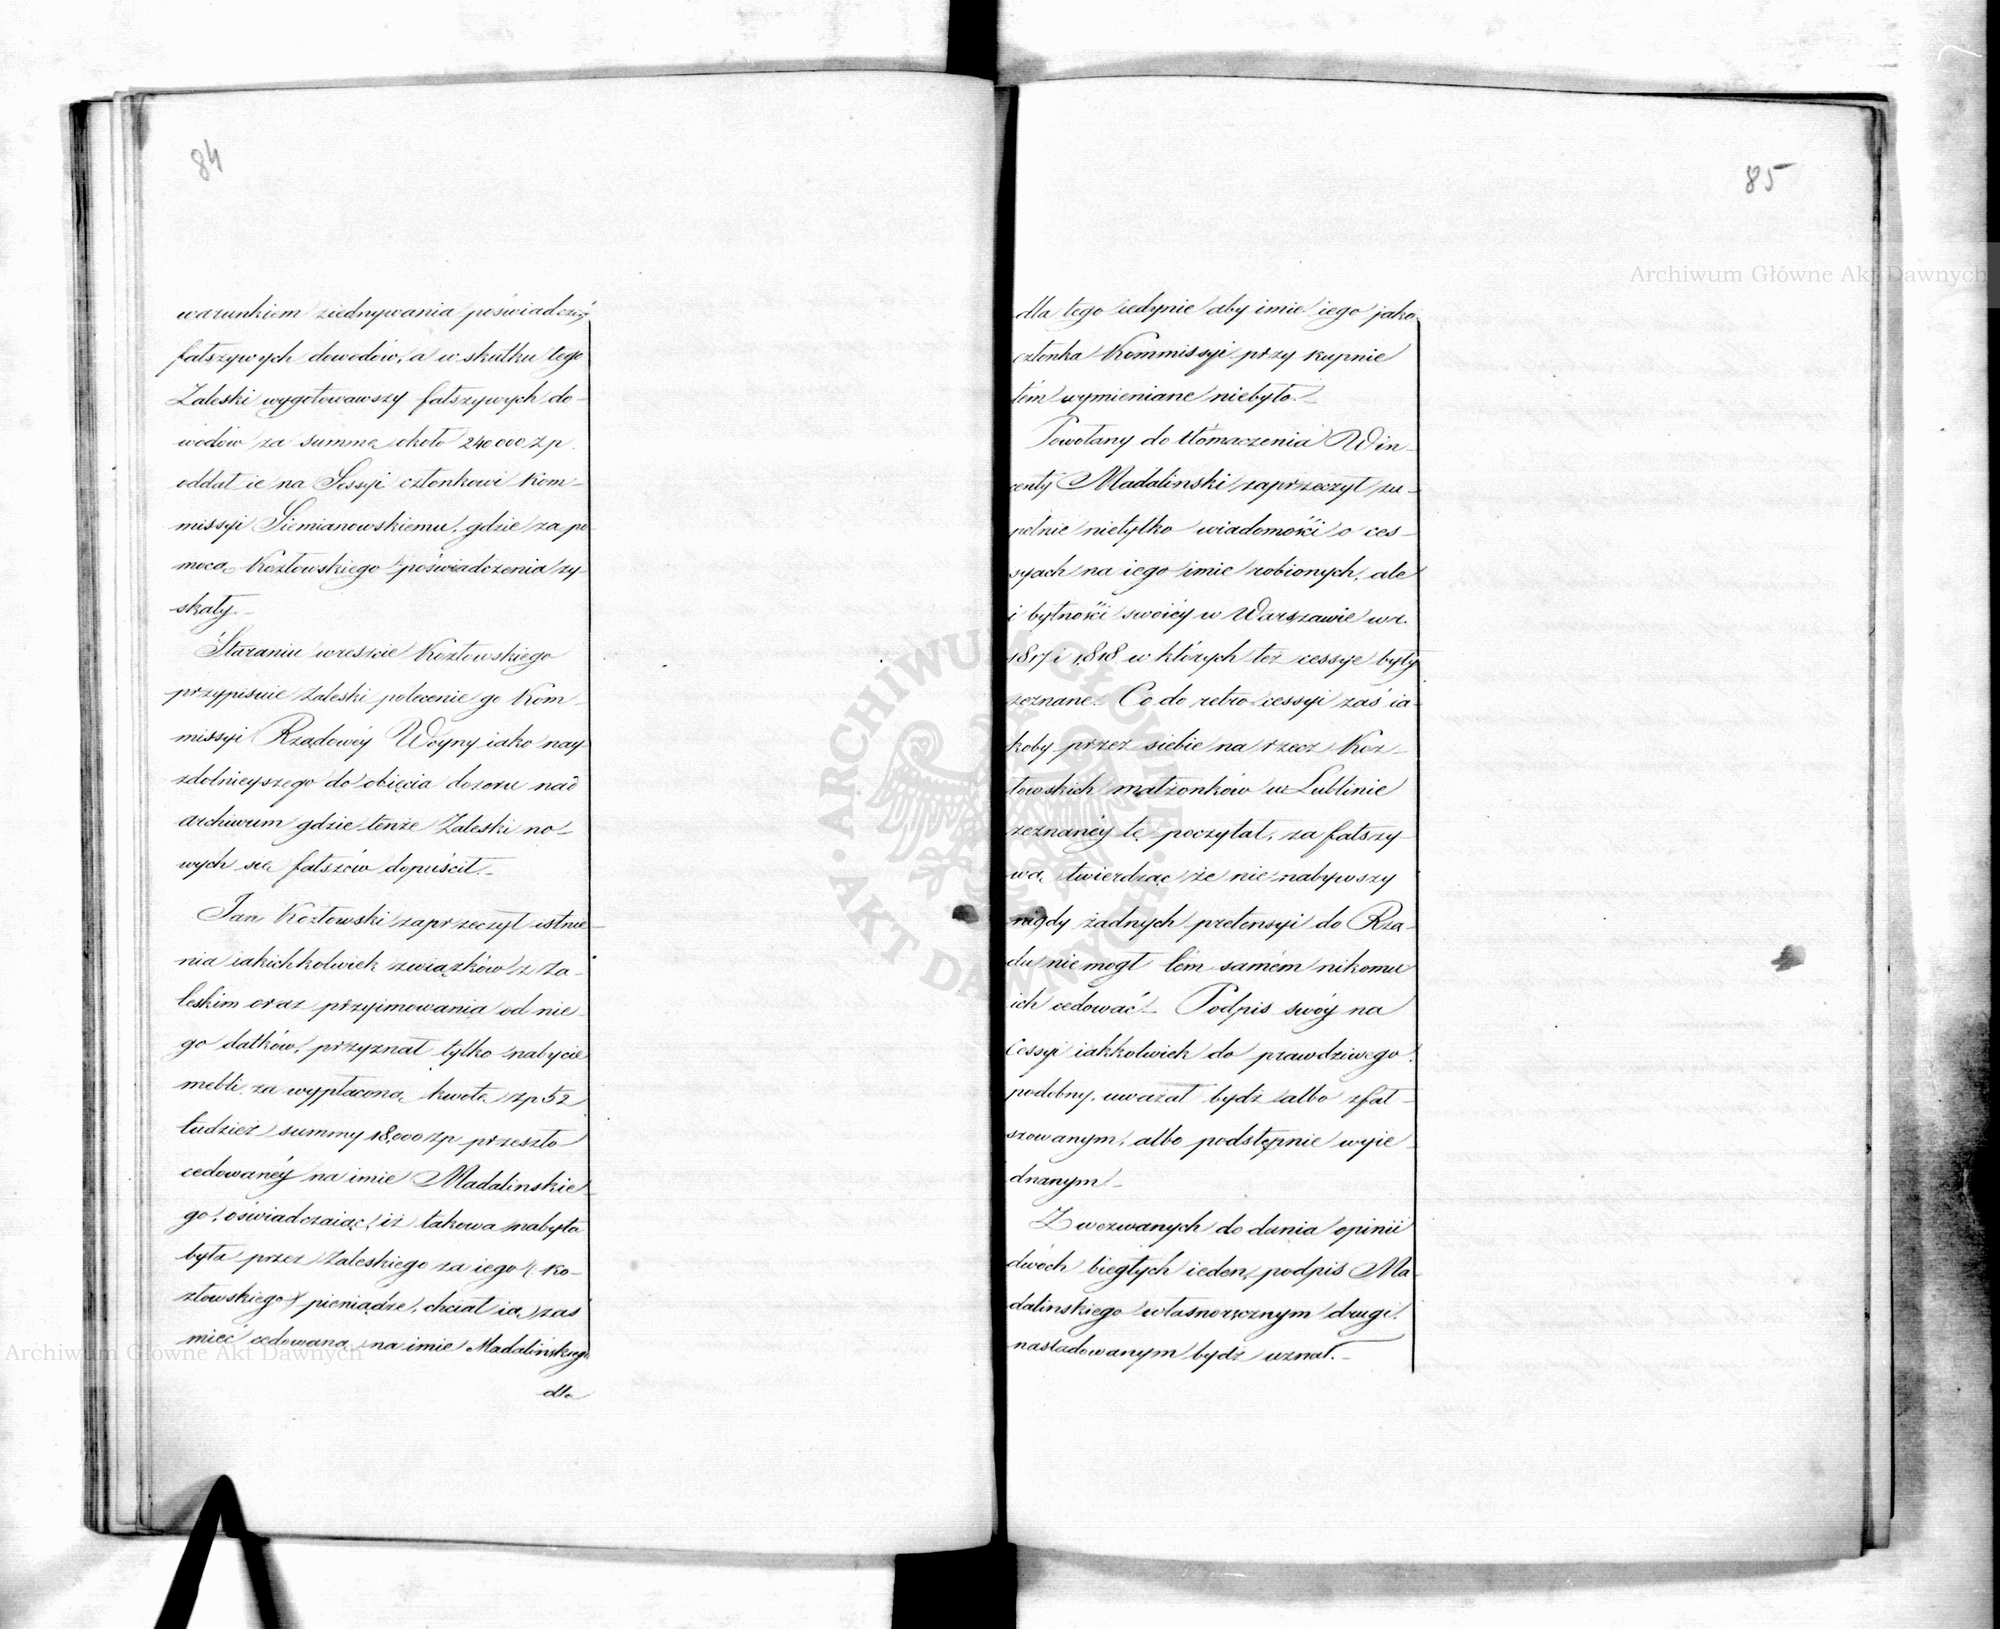 84
warunkiem ziednywania poświadczeń
fałszywych dowodów, a w skutku tego
Zaleski wygotowawszy fałszywych do-
wodów za summę około 240000 zp.
oddał ie na Sessyi członkowi Kom-
missyi Siemianowskiemu, gdzie za po
mocą Kozłowskiego poświadczenia zy-
skały.-
Staraniu wreszcie Kozłowskiego
przypisuie Zaleski polecenie go Kom-
missyi Rządowéy Woyny iako nay-
zdolnieyszego do obięcia dozoru nad
archiwum gdzie tenże Zaleski no-
wych się fałszów dopuścił.-
Jan Kozłowski zaprzeczył istnie-
nia iakichkolwiek związków z Za-
leskim oraz przyimowania od nie-
go datków, przyznał tylko nabycie
mebli za wypłaconą kwotę zp 52
tudzież summy 18,000 zp przeszło
cedowanéy na imie Madalinskie-
go, oświadczaiąc, iż takowa nabyta
była przez Zaleskiego za iego (: Ko-
złowskiego :) pieniądze, chciał ią zaś
mieć cedowaną na imie Madalinskiego
dla
85
dla tego iedynie aby imie iego jako
członka Kommissyi przy kupnie
tém wymieniane niebyło.-
Powołany do tłómaczenia Win-
centy Madalinski zaprzeczył zu-
pełnie nietylko wiadomości o ces-
syach na iego imie robionych, ale
i bytności swoiéy w Warszawie w r.
1817 i 1818 w których też cessye były
zeznane. Co do retro cessyi zaś ia-
koby przez siebie na rzecz Koz-
łowskich małżonków w Lublinie
zeznanéy tę poczytał, za fałszy-
wą twierdząc że nie nabywszy
nigdy żadnych pretensyi do Rzą-
du nie mogł tém samém nikomu
ich cedować.- Podpis swóy na
Cessyi iakkolwiek do prawdziwego
podobny, uważał bydź albo zfał-
szowanym, albo podstępnie wyie-
dnanym.-
Z wezwanych do dania opinii
dwóch biegłych ieden podpis Ma-
dalinskiego własnoręcznym drugi
nasladowanym bydź uznał.-
Archiwum Główne Akt Dawnych
Archiwum Główne Akt Dawnych
ARCHIWUM GŁÓWNE AKT DAWNYCH